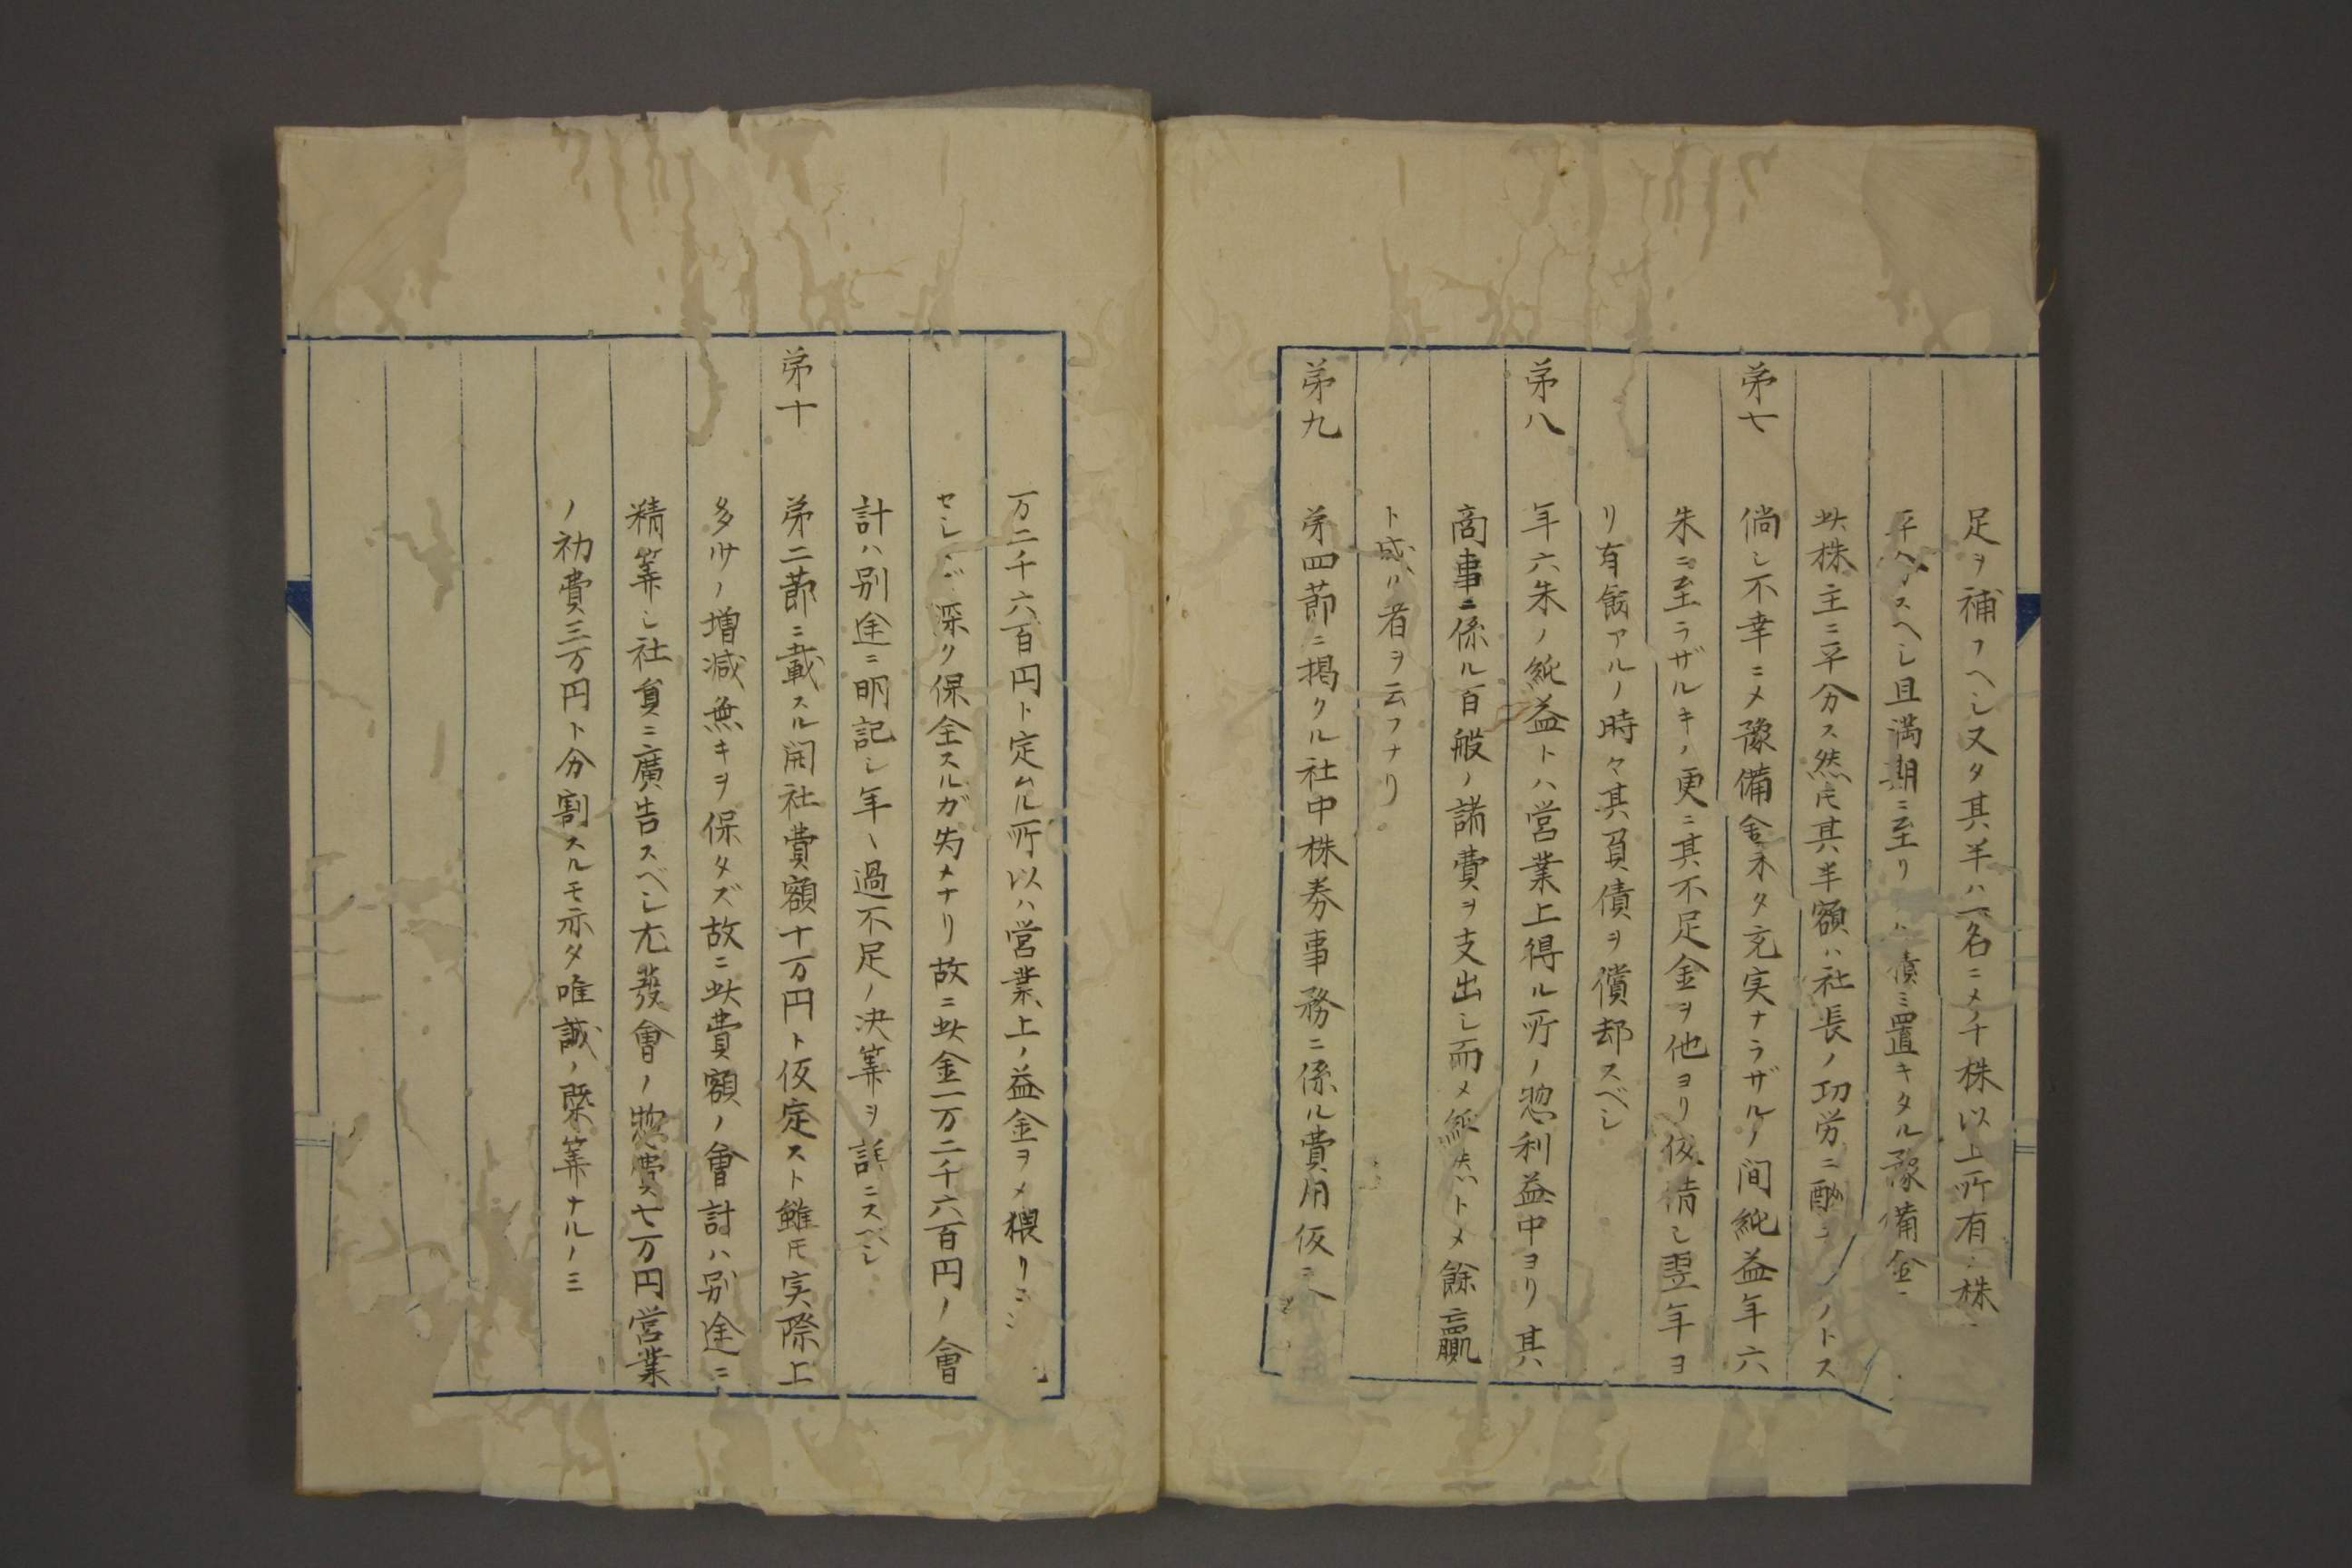 足ヲ補フヘシ又タ其半ハ一名ニメ千株以上所有ノ株
平分スヘシ且満期ニ至リ 積ミ置キタル豫備金
此株主ニ平分ス然ㇳモ其半額ハ社長ノ功労ニ酬 ノトス
第七 倘シ不幸ニメ豫備金未タ充実ナラザルノ間純益年六
朱ニ至ラザルキハ更ニ其不足金ヲ他ヨリ仮清シ翌年ヨ
リ有餘アルノ時々其負債ヲ償却スベシ
第八 年六朱ノ純益トハ営業上得ル所ノ惣利益中ヨリ其
商事ニ係ル百般ノ諸費ヲ支出シ而メ純然トメ餘贏
ト成ル者ヲ云フナリ
第九 第四節ニ掲クル社中株券事務ニ係ル費用仮ニ
万二千六百円ト定ムル所以ハ営業上ノ益金ヲメ猥リニ
セシ 深ク保全スルガ為メナリ故ニ此金一万二千六百円ノ會
計ハ別途ニ明記シ年〻過不足ノ決算ヲ詳ニスベシ
第十 第二節ニ載スル開社費額十万円ト仮定スト雖ㇳモ実際上
多少ノ増減無キヲ保タズ故ニ此費額ノ會計ハ別途ニ
精算シ社員ニ廣告スベシ尤發會ノ惣費七万円営業
ノ初費三万円ト分割スルモ亦タ唯誠ノ槩算ナルノミ